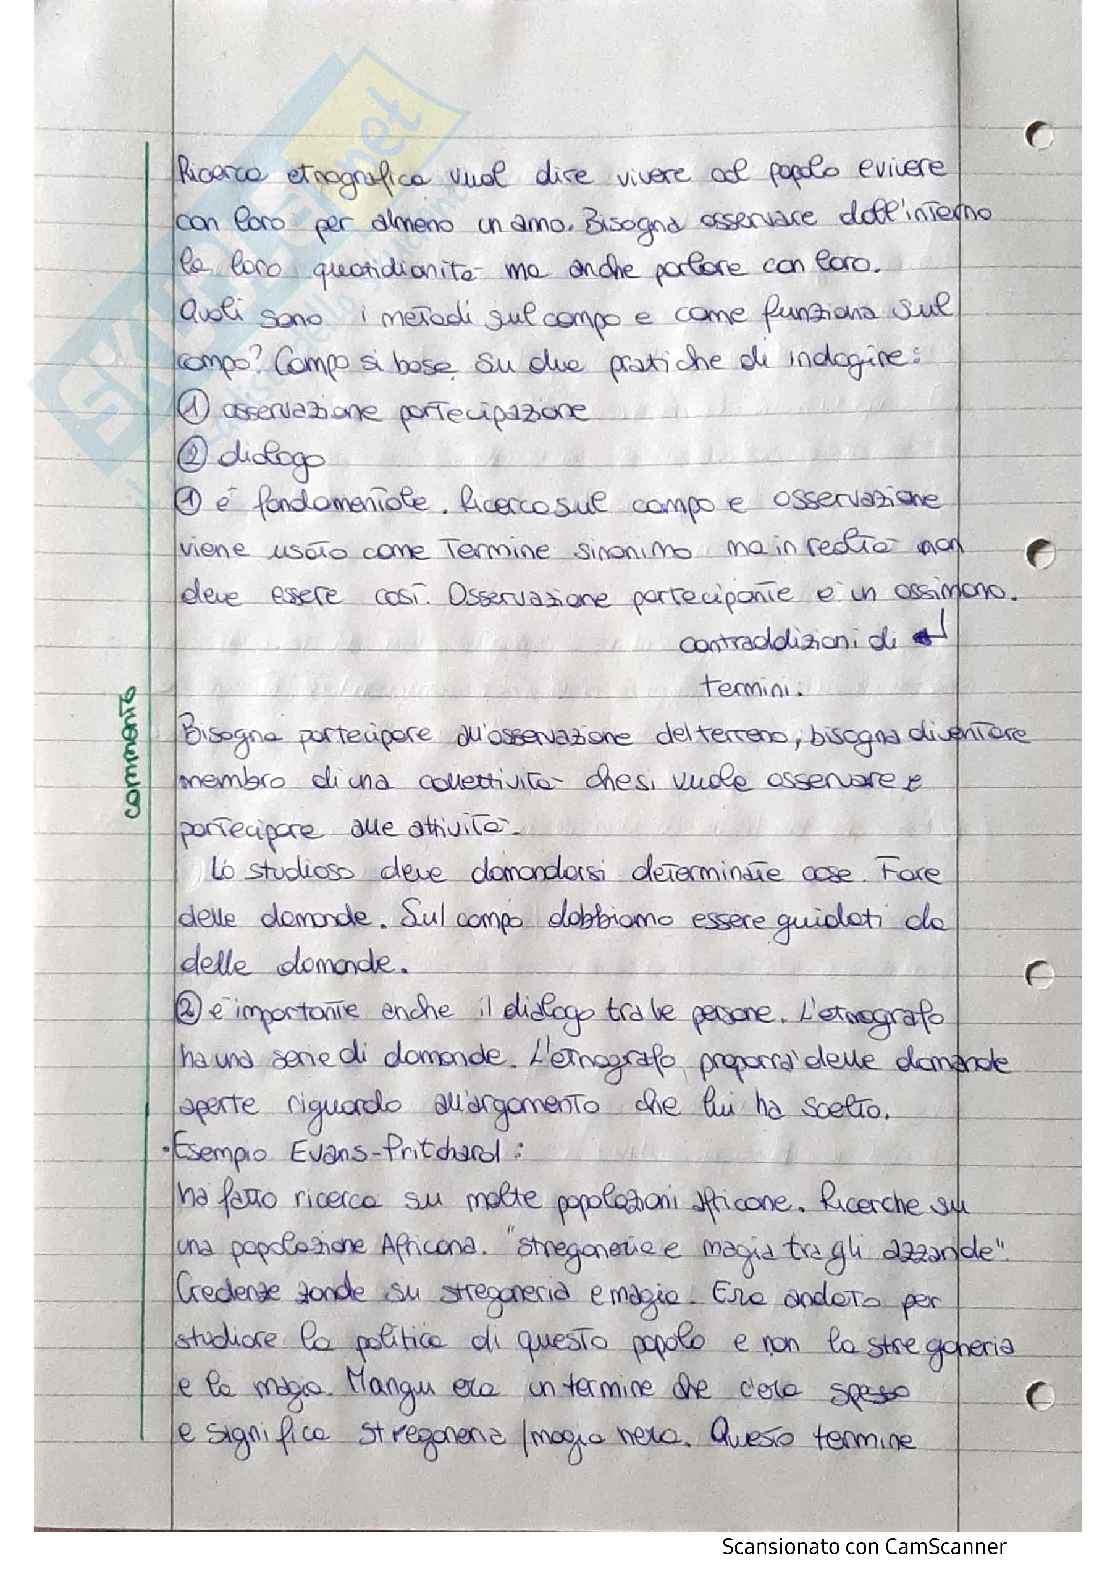 Ricerca etnografica vuol dire vivere col popolo e vivere
con loro per almeno un anno. Bisogna osservare dall'interno
la loro quotidianità ma anche parlare con loro.
Quali sono i metodi sul campo e come funziona sul
campo? Campo si basa su due pratiche di indagine:
① osservazione partecipazione
② dialogo
① è fondamentale. Ricerca sul campo e osservazione
viene usato come termine sinonimo ma in realtà non
deve essere così. Osservazione partecipante è un ossimoro.
contraddizioni di
termini.
commento
Bisogna partecipare all'osservazione del terreno, bisogna diventare
membro di una collettività che si vuole osservare e
partecipare alle attività.
Lo studioso deve domandarsi determinate cose. Fare
delle domande. Sul campo dobbiamo essere guidati da
delle domande.
② è importante anche il dialogo tra le persone. L'etnografo
ha una serie di domande. L'etnografo proporrà delle domande
aperte riguardo all'argomento che lui ha scelto.
• Esempio Evans-Pritchard:
ha fatto ricerca su molte popolazioni africane. Ricerche su
una popolazione Africana. "stregonerie e magia tra gli azzande".
Credenze zande su stregoneria e magia. Era andato per
studiare la politica di questo popolo e non la stregoneria
e la magia. Mangu era un termine che c'era spesso
e significa stregoneria/magia nera. Questo termine
Scansionato con CamScanner